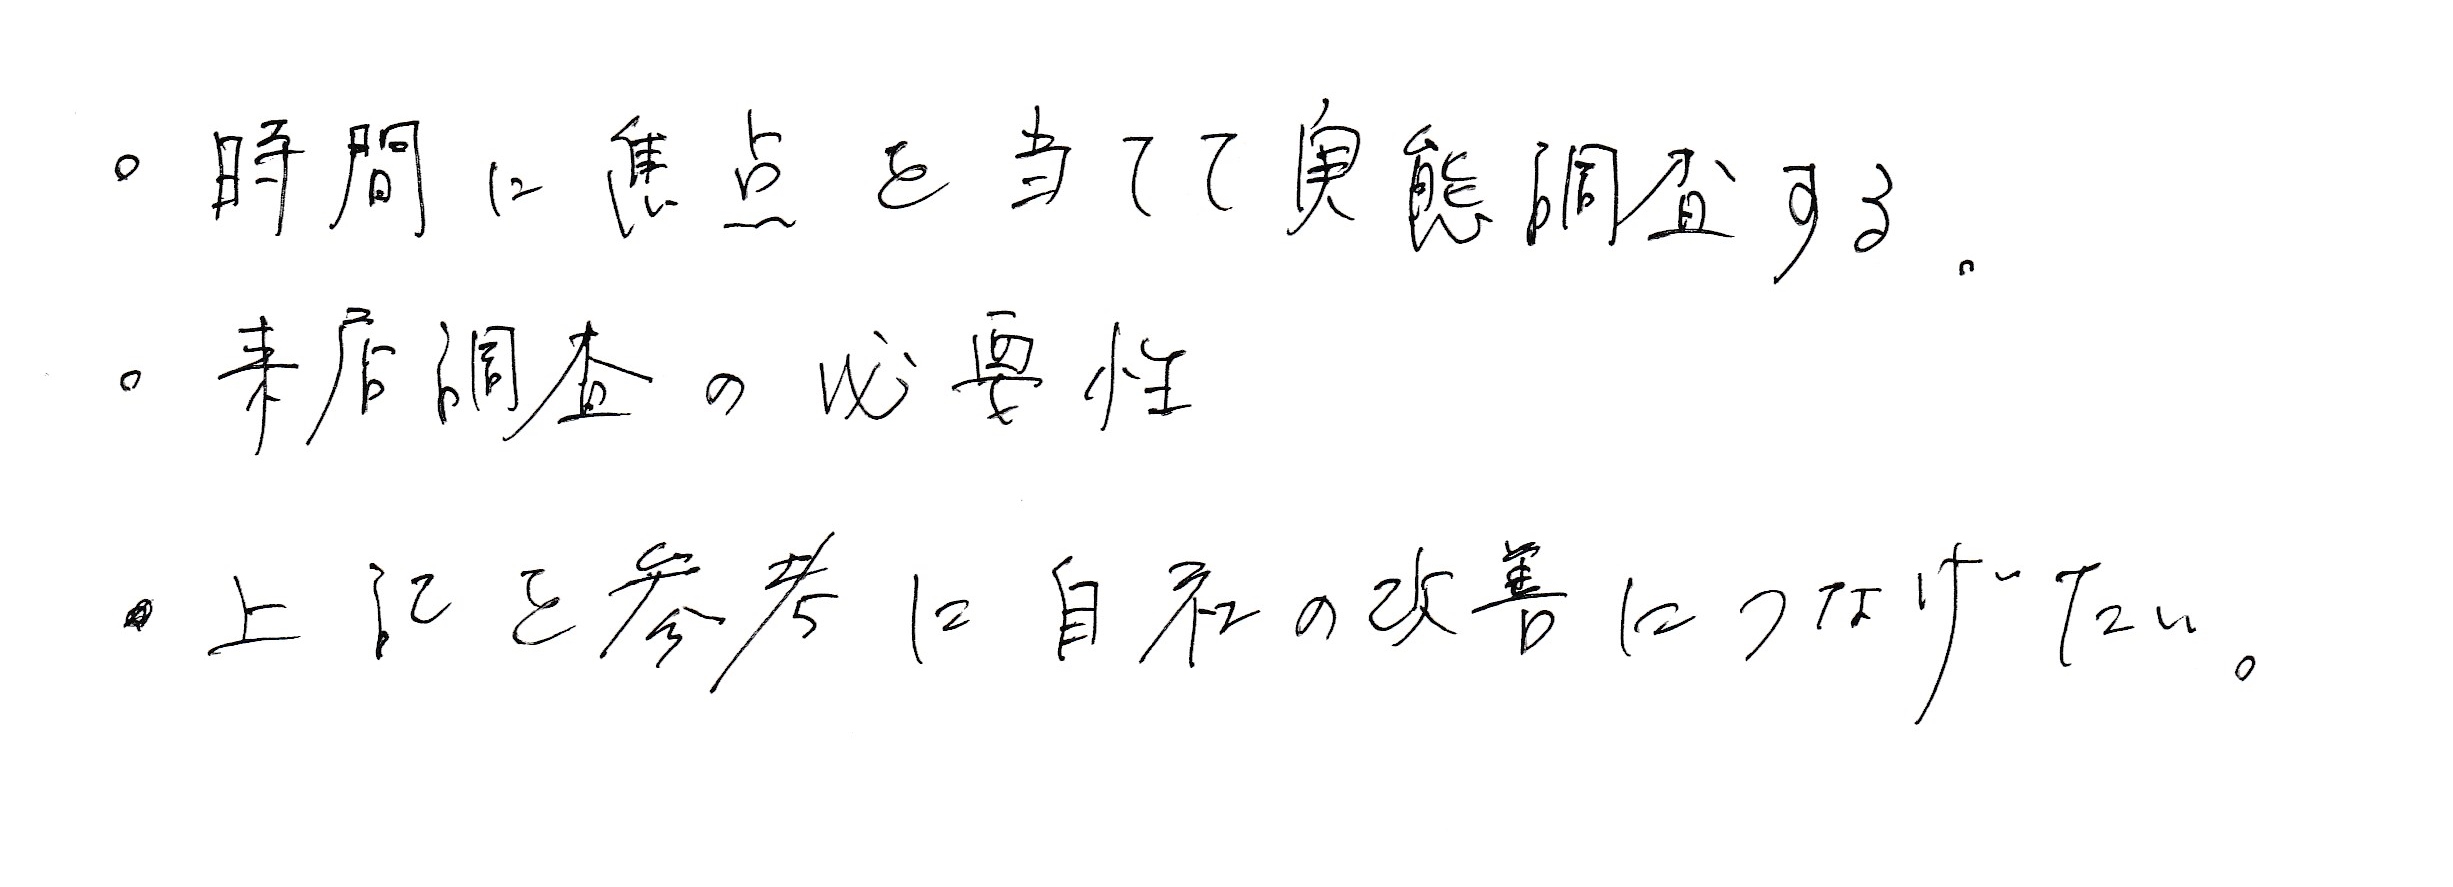 。時間に焦点を当てて実態調査する。
。来店調査の必要性
・上記を参考に自社の改善につなげたい。